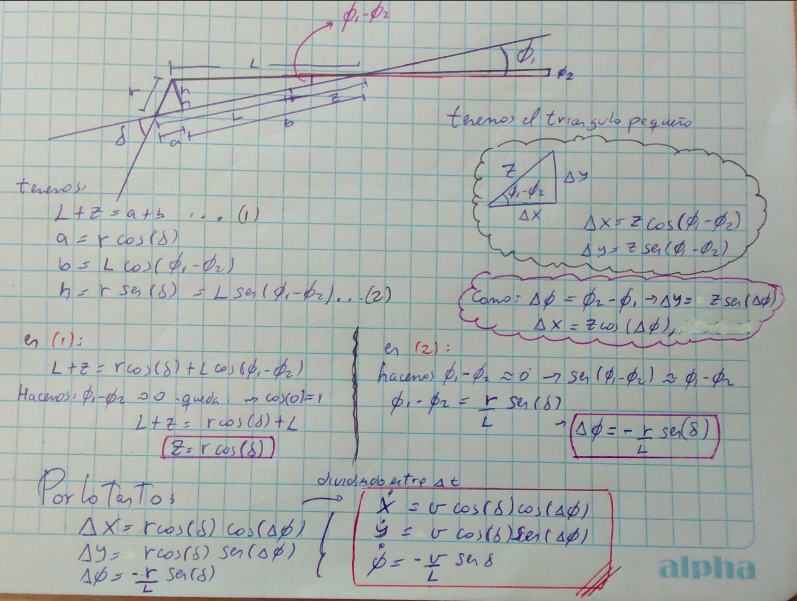 ϕ₁-ϕ₂
L
ϕ₁
ϕ₂
r
r
h
z
L
b
a
δ
tenemos el triangulo pequeño
z
Δy
ϕ₁-ϕ₂
Δx
Δx = z cos(ϕ₁-ϕ₂)
Δy = z sen(ϕ₁-ϕ₂)
tenemos:
L+z = a+b ... (1)
a = r cos(δ)
b = L cos(ϕ₁-ϕ₂)
h = r sen(δ) = L sen(ϕ₁-ϕ₂)...(2)
Como: Δϕ = ϕ₂-ϕ₁ → Δy = z sen(Δϕ)
Δx = z cos(Δϕ)
en (1):
L+z = r cos(δ)+L cos(ϕ₁-ϕ₂)
Hacemos: ϕ₁-ϕ₂ ≈ 0 queda: → cos(0)=1
L+z = r cos(δ)+L
z = r cos(δ)
en (2):
hacemos ϕ₁-ϕ₂ ≈ 0 → sen(ϕ₁-ϕ₂) ≈ ϕ₁-ϕ₂
ϕ₁-ϕ₂ = r/L sen(δ)
→ Δϕ = - r/L sen(δ)
Por lo tanto:
Δx = r cos(δ) cos(Δϕ)
Δy = r cos(δ) sen(Δϕ)
Δϕ = - r/L sen(δ)
dividiendo entre Δt
ẋ = v cos(δ) cos(Δϕ)
ẏ = v cos(δ) sen(Δϕ)
ϕ̇ = - v/L sen δ
alpha